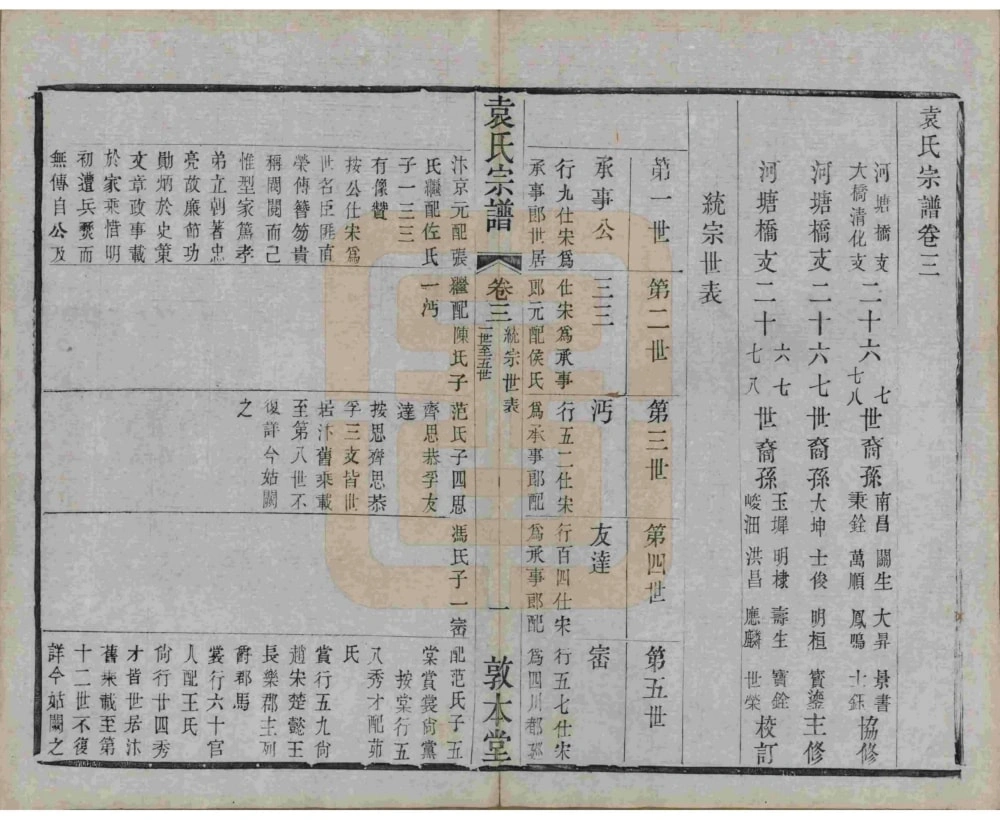 袁氏宗譜卷三
河塘橋支
大橋清化支
二十六
七
七八
世裔孫
南昌 關生 大昇 景書
秉銓 萬順 鳳鳴 士鈺
協修
河塘橋支二十六七世裔孫
大坤 士俊 明桓 寶鎏
主修
河塘橋支二十
六七
七八
世裔孫
玉墀 明棣 壽生 寶銓
峻沺 洪昌 應麟 世榮
校訂
統宗世表
第一世
第二世
第三世
第四世
第五世
承事公
行九仕宋爲
承事郎世居
汴京元配張
氏繼配佐氏
子一三三
有像贊
按公仕宋爲
世名臣匪直
榮傳簪笏貴
稱閥閱而已
惟型家篤孝
弟立朝著忠
亮故廉節功
勛炳於史策
文章政事載
於家乘惜明
初遭兵燹而
無傳自公及
三三
仕宋爲承事
郎元配侯氏
繼配陳氏子
一沔
沔
行五二仕宋
爲承事郎配
范氏子四思
齊思恭孚友
達
按思齊思恭
孚三支皆世
居汴舊乘載
至第八世不
復詳今姑闕
之
友達
行百四仕宋
爲承事郎配
馮氏子一窑
窑
行五七仕宋
爲四川都
配范氏子五
棠賞裳尙黨
八秀才配茆
按棠行五
氏
賞行五九尙
趙宋楚懿王
長樂郡主列
爵郡馬
裳行六十官
人配王氏
尙行廿四秀
才皆世居汴
舊乘載至第
十二世不復
詳今姑闕之
袁氏宗譜
卷三
統宗世表
一世至五世
一
敦本堂